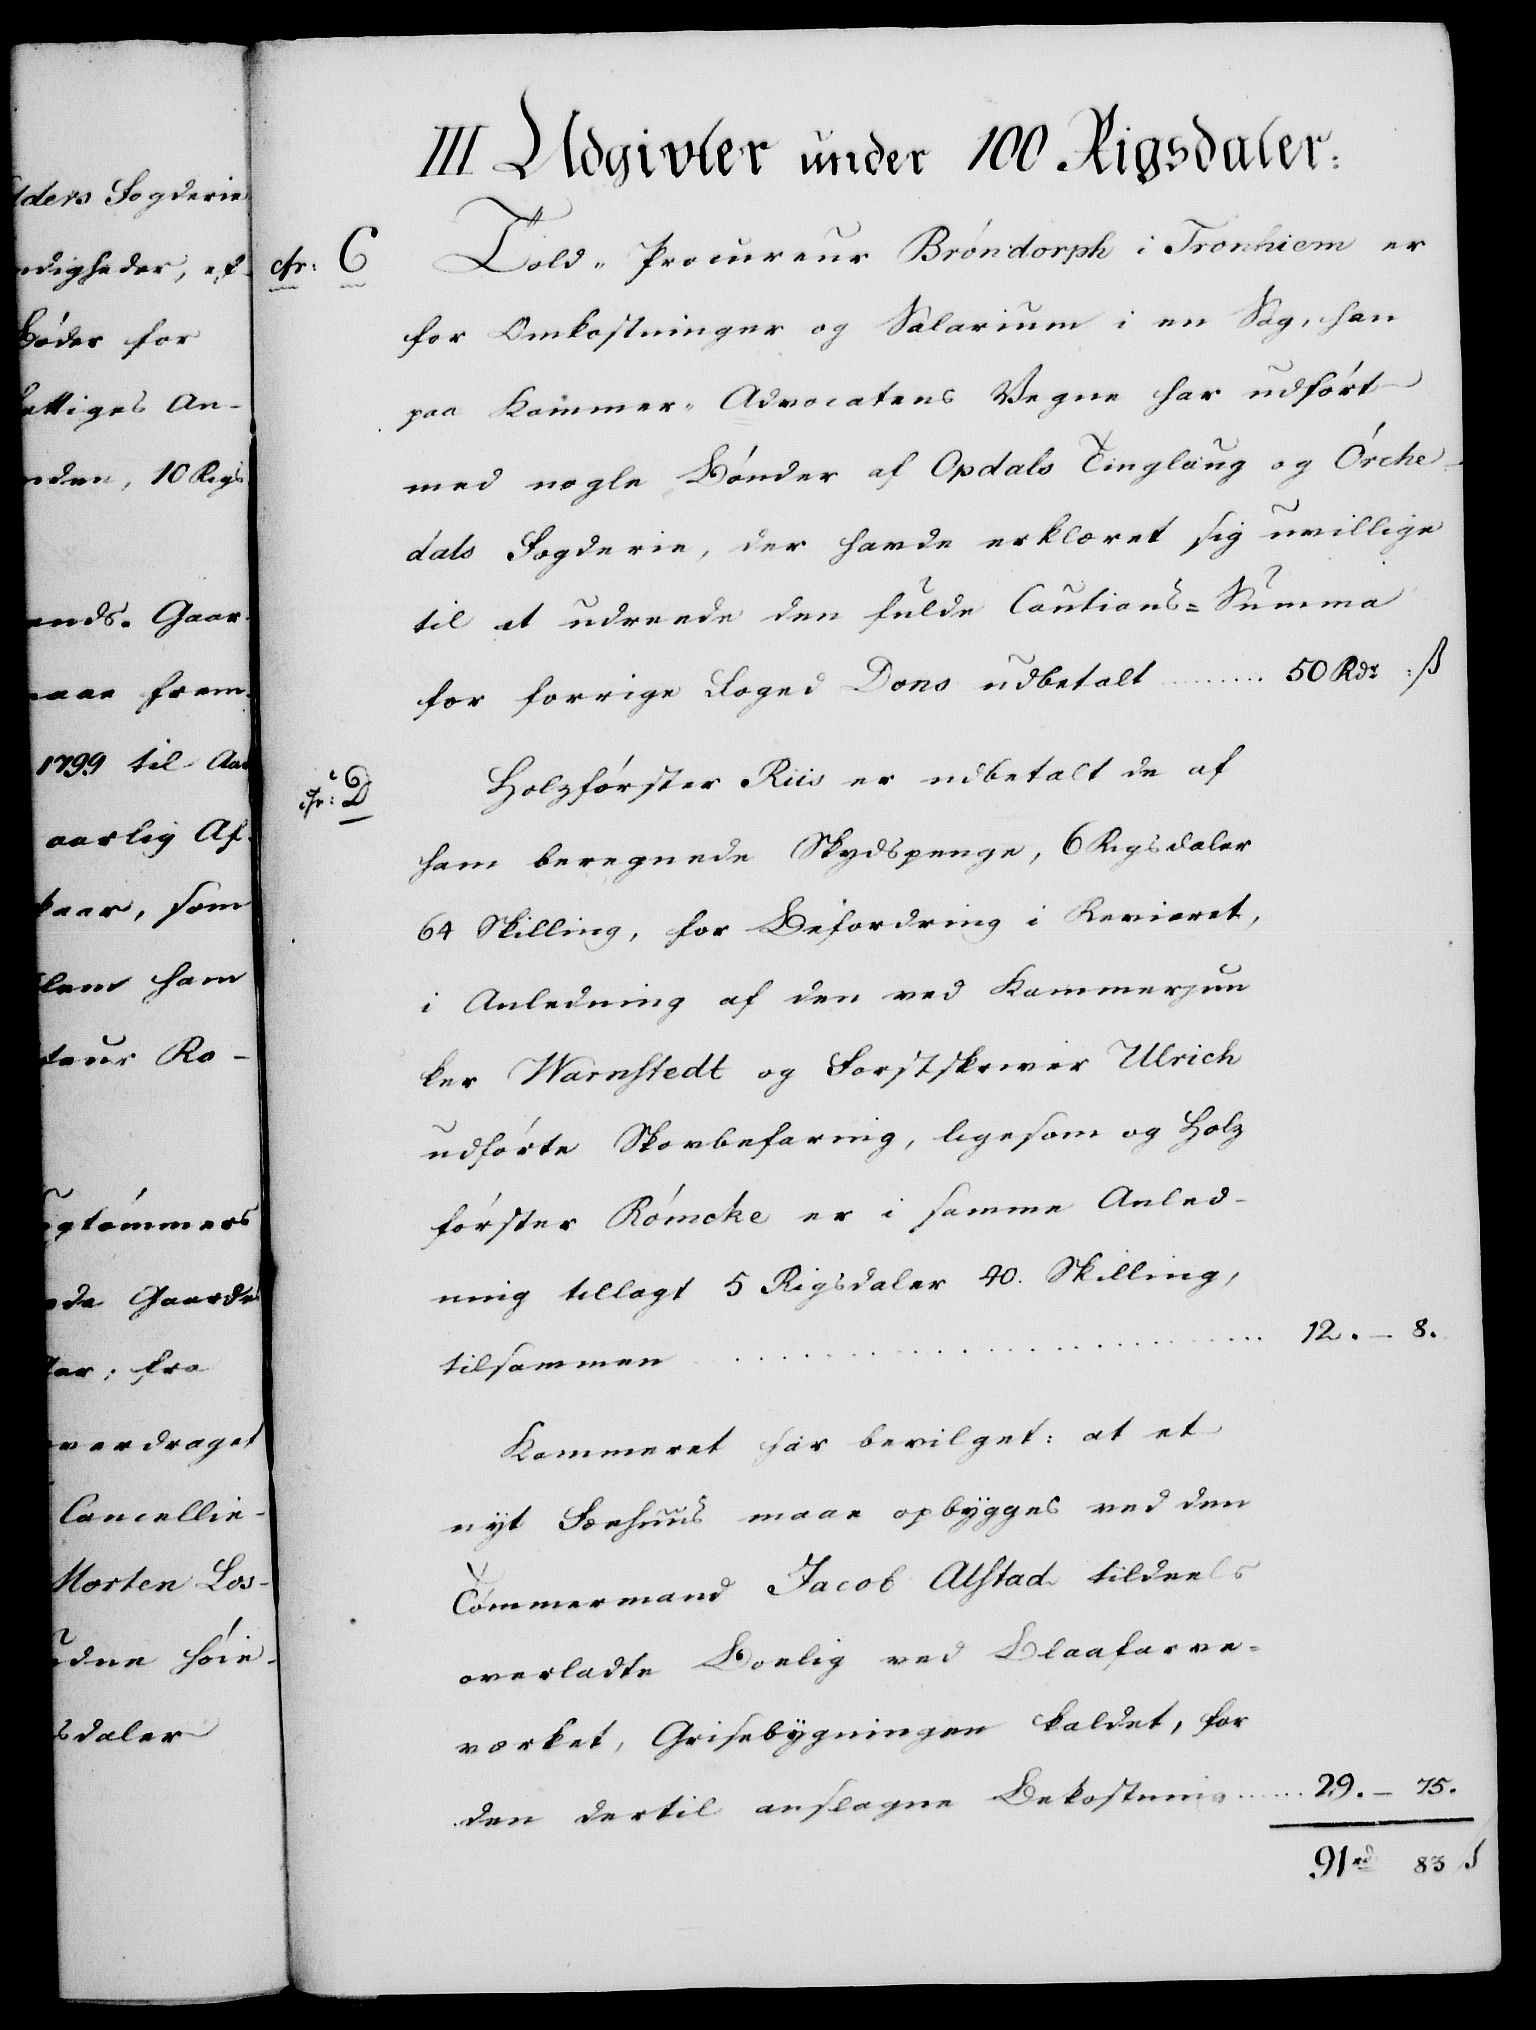 ders Fogderie
ndigheder, ef-
Bøder for
attiges An-
nden, 10 Rigs
ends. Gaar-
aae frem-
1799 til Aar
aarlig Af-
kaar, som
lem ham
teur Ro-
gtømmers
ede Gaardes
ar; fra
overdraget
Cancellie-
Morten Los-
dne høie-
sdaler
III Udgivter under 100 Rigsdaler:
cfr: C Told-Procureur Bröndorph i Tronhiem er
for Omkostninger og Salarium i en Sag, han
paa Kammer-Advocatens Vegne har udført
med nogle Bønder af Opdals Tinglaug og Örche-
dals Fogderie, der havde erklæret sig uvillige
til at udreede den fulde Cautions=Summa
for forrige Foged Dons udbetalt ........ 50 Rdr :ß
cfr: D Holzförster Riis er udbetalt de af
ham beregnede Skydspenge, 6 Rigsdaler
64 Skilling, for Befordring i Revieret,
i Anledning af den ved Kammerjun
ker Warnstedt og Forstskriver Ulrich
udførte Skovbefaring, ligesom og Holz
förster Römcke er i samme Anled-
ning tillagt 5 Rigsdaler 40. Skilling,
tilsammen ........ 12. - 8.
Kammeret har bevilget: at et
nyt Fæehuus maae opbygges ved den
Tømmermand Jacob Alstad tildeels
overladte Boelig ved Blaafarve=
værket, Grisebygningen kaldet, for
den dertil anslagne Bekostning ...... 29. - 75.
91 rd 83 ß